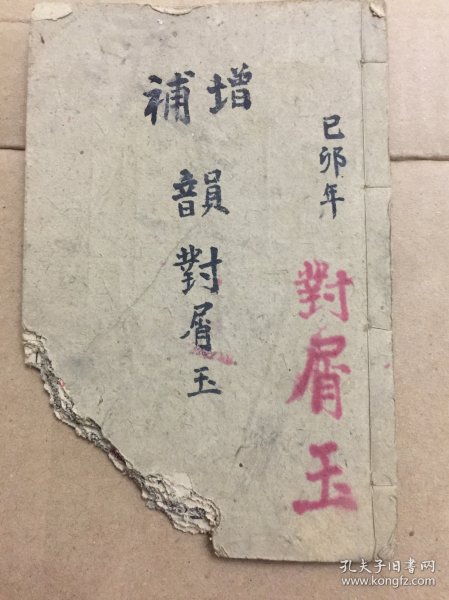 己卯年
對屑玉
增補
韻對屑玉
孔夫子旧书网
www.kongfz.com